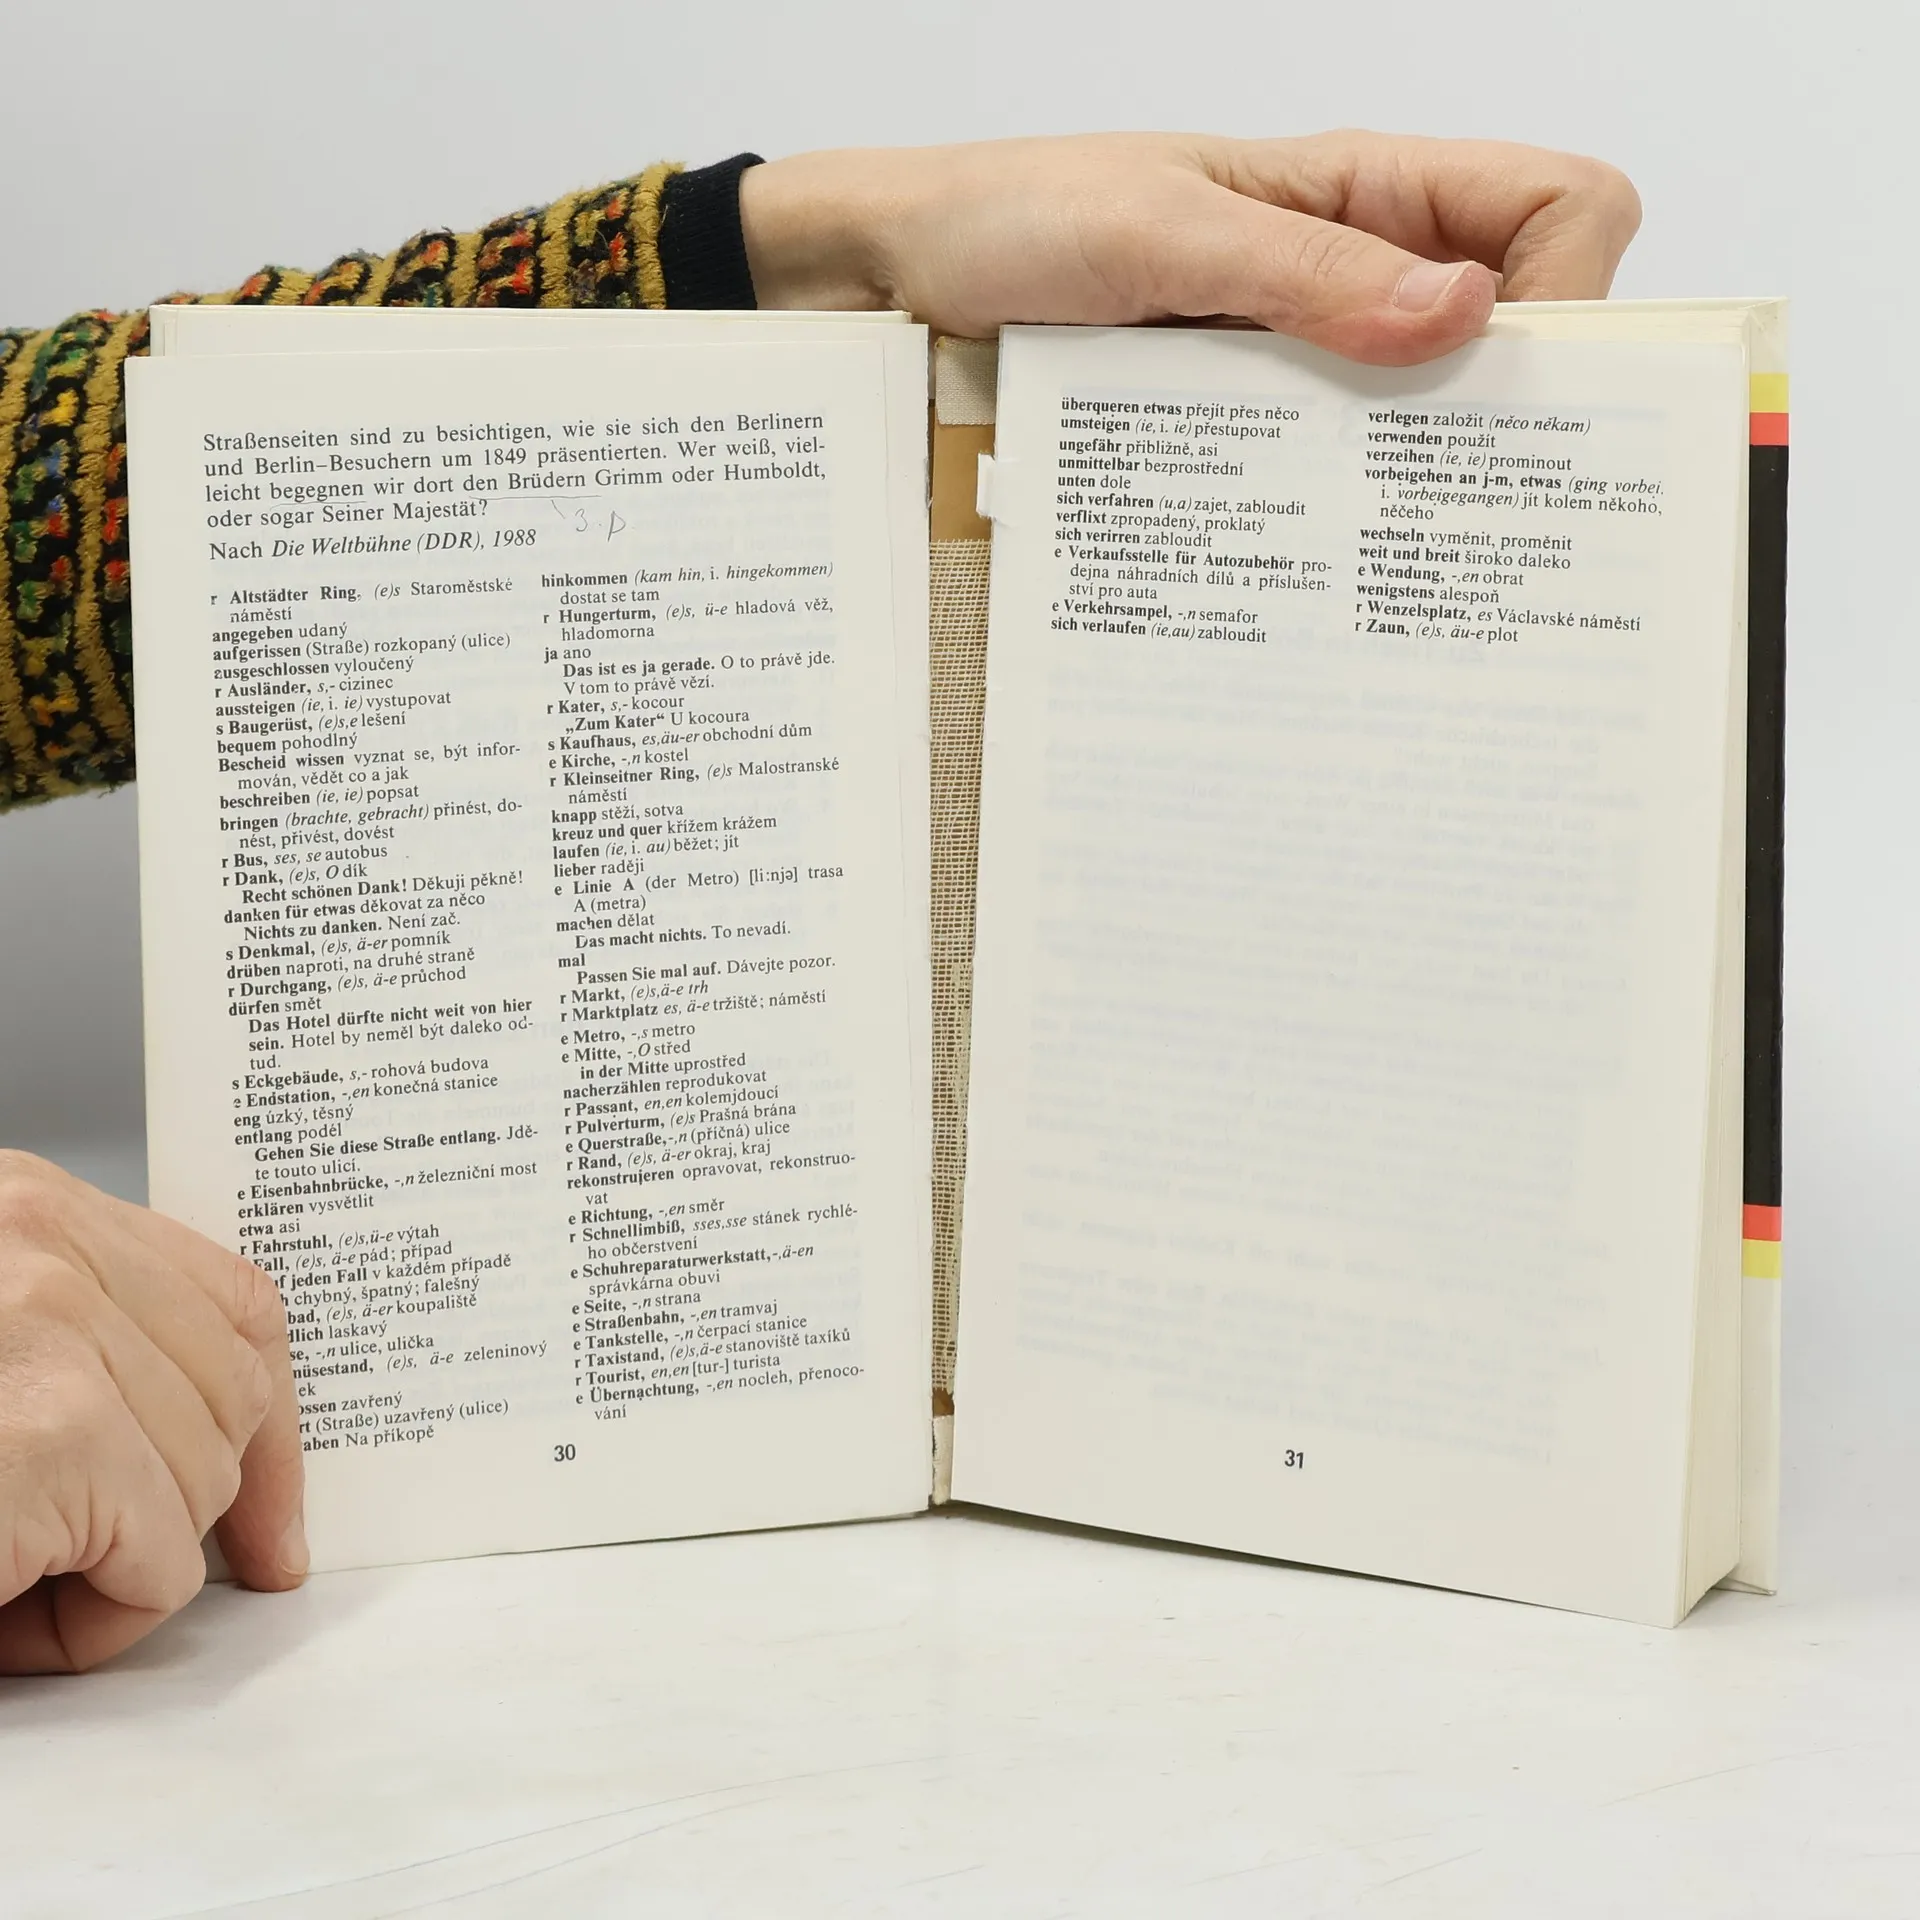 Straßenseiten sind zu besichtigen, wie sie sich den Berlinern
und Berlin–Besuchern um 1849 präsentierten. Wer weiß, viel-
leicht begegnen wir dort den Brüdern Grimm oder Humboldt,
oder sogar Seiner Majestät?
3. p.
Nach Die Weltbühne (DDR), 1988
r Altstädter Ring, (e)s Staroměstské
náměstí
angegeben udaný
aufgerissen (Straße) rozkopaný (ulice)
ausgeschlossen vyloučený
r Ausländer, s,- cizinec
aussteigen (ie, i. ie) vystupovat
s Baugerüst, (e)s,e lešení
bequem pohodlný
Bescheid wissen vyznat se, být infor-
mován, vědět co a jak
beschreiben (ie, ie) popsat
bringen (brachte, gebracht) přinést, do-
nést, přivést, dovést
r Bus, ses, se autobus
r Dank, (e)s, O dík
Recht schönen Dank! Děkuji pěkně!
danken für etwas děkovat za něco
Nichts zu danken. Není zač.
s Denkmal, (e)s, ä-er pomník
drüben naproti, na druhé straně
r Durchgang, (e)s, ä-e průchod
dürfen smět
Das Hotel dürfte nicht weit von hier
sein. Hotel by neměl být daleko od-
tud.
s Eckgebäude, s,- rohová budova
e Endstation, -,en konečná stanice
eng úzký, těsný
entlang podél
Gehen Sie diese Straße entlang. Jdě-
te touto ulicí.
e Eisenbahnbrücke, -,n železniční most
erklären vysvětlit
etwa asi
r Fahrstuhl, (e)s,ü-e výtah
Fall, (e)s, ä-e pád; případ
f jeden Fall v každém případě
h chybný, špatný; falešný
bad, (e)s, ä-er koupaliště
dlich laskavý
se, -,n ulice, ulička
müsestand, (e)s, ä-e zeleninový
ek
ossen zavřený
rt (Straße) uzavřený (ulice)
aben Na příkopě
hinkommen (kam hin, i. hingekommen)
dostat se tam
r Hungerturm, (e)s, ü-e hladová věž,
hladomorna
ja ano
Das ist es ja gerade. O to právě jde.
V tom to právě vězí.
r Kater, s,- kocour
„Zum Kater“ U kocoura
s Kaufhaus, es,äu-er obchodní dům
e Kirche, -,n kostel
r Kleinseitner Ring, (e)s Malostranské
náměstí
knapp stěží, sotva
kreuz und quer křížem krážem
laufen (ie, i. au) běžet; jít
lieber raději
e Linie A (der Metro) [li:njə] trasa
A (metra)
machen dělat
Das macht nichts. To nevadí.
mal
Passen Sie mal auf. Dávejte pozor.
r Markt, (e)s,ä-e trh
r Marktplatz es, ä-e tržiště; náměstí
e Metro, -,s metro
e Mitte, -,O střed
in der Mitte uprostřed
nacherzählen reprodukovat
r Passant, en,en kolemjdoucí
r Pulverturm, (e)s Prašná brána
e Querstraße,-,n (příčná) ulice
r Rand, (e)s, ä-er okraj, kraj
rekonstruieren opravovat, rekonstruo-
vat
e Richtung, -,en směr
r Schnellimbiß, sses,sse stánek rychlé-
ho občerstvení
e Schuhreparaturwerkstatt,-,ä-en
správkárna obuvi
e Seite, -,n strana
e Straßenbahn, -,en tramvaj
e Tankstelle, -,n čerpací stanice
r Taxistand, (e)s,ä-e stanoviště taxíků
r Tourist, en,en [tur-] turista
e Übernachtung, -,en nocleh, přenoco-
vání
30
überqueren etwas přejít přes něco
umsteigen (ie, i. ie) přestupovat
ungefähr přibližně, asi
unmittelbar bezprostřední
unten dole
sich verfahren (u,a) zajet, zabloudit
verflixt zpropadený, proklatý
sich verirren zabloudit
e Verkaufsstelle für Autozubehör pro-
dejna náhradních dílů a příslušen-
ství pro auta
e Verkehrsampel, -,n semafor
sich verlaufen (ie,au) zabloudit
verlegen založit (něco někam)
verwenden použít
verzeihen (ie, ie) prominout
vorbeigehen an j-m, etwas (ging vorbei,
i. vorbeigegangen) jít kolem někoho,
něčeho
wechseln vyměnit, proměnit
weit und breit široko daleko
e Wendung, -,en obrat
wenigstens alespoň
r Wenzelsplatz, es Václavské náměstí
r Zaun, (e)s, äu-e plot
31